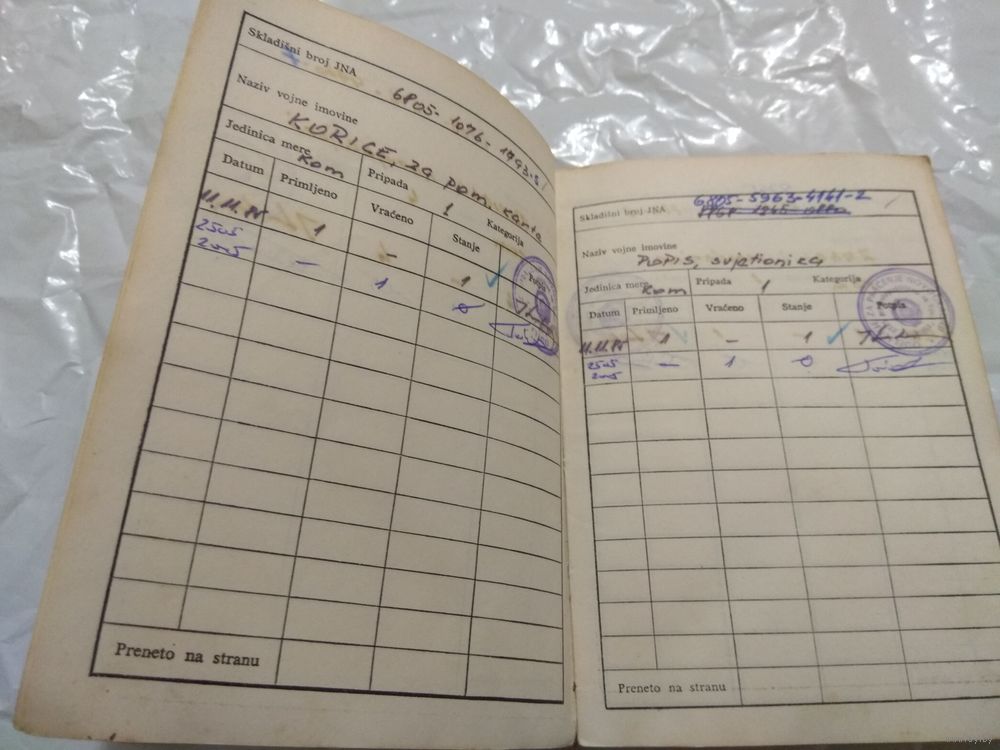 Skladišni broj JNA 6805-1076-1793-5
Naziv vojne imovine
KORICE za pom. karta
Jedinica mere Kom Pripada 1 Kategorija
Datum Primljeno Vraćeno Stanje
11.11. 1 - 1
2505 2005 - 1 0
Preneto na stranu
Skladišni broj JNA 6805-5963-4141-2
Naziv vojne imovine
POPIS, svjetionika
Jedinica mere Kom Pripada 1 Kategorija
Datum Primljeno Vraćeno Stanje Potpis
11.11. 1 - 1
2505 2005 - 1 0
Preneto na stranu